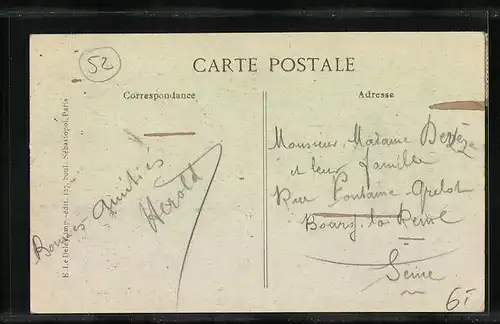 52
CARTE POSTALE
Correspondance
Adresse
Bonnes Amitiés
Herold
Monsieur, Madame
et leur famille
Rue Fontaine-Grelot
Bourg-la-Reine
Seine
E. Le Deley, imp.-édit. 127, boul. Sébastopol, Paris